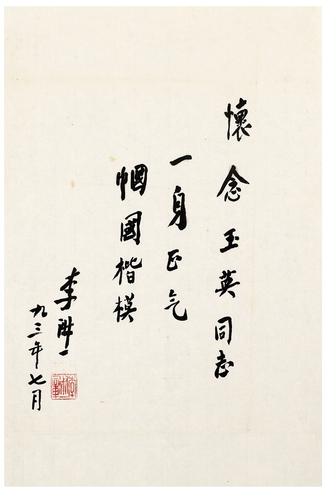 懷念玉英同志
一身正气
帼國楷模
李
九三年七月